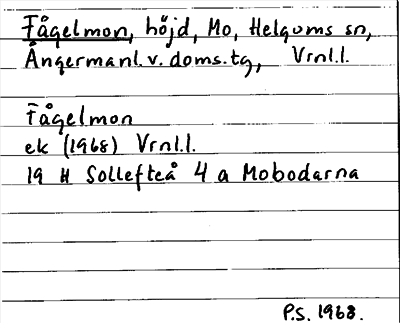 Fågelmon, höjd, Mo, Helgums sn,
Ångermanl. v. doms. tg, Vrnl.l.
Fågelmon
ek (1968) Vrnl.l.
19 H Sollefteå 4 a Mobodarna
P.S. 1968.